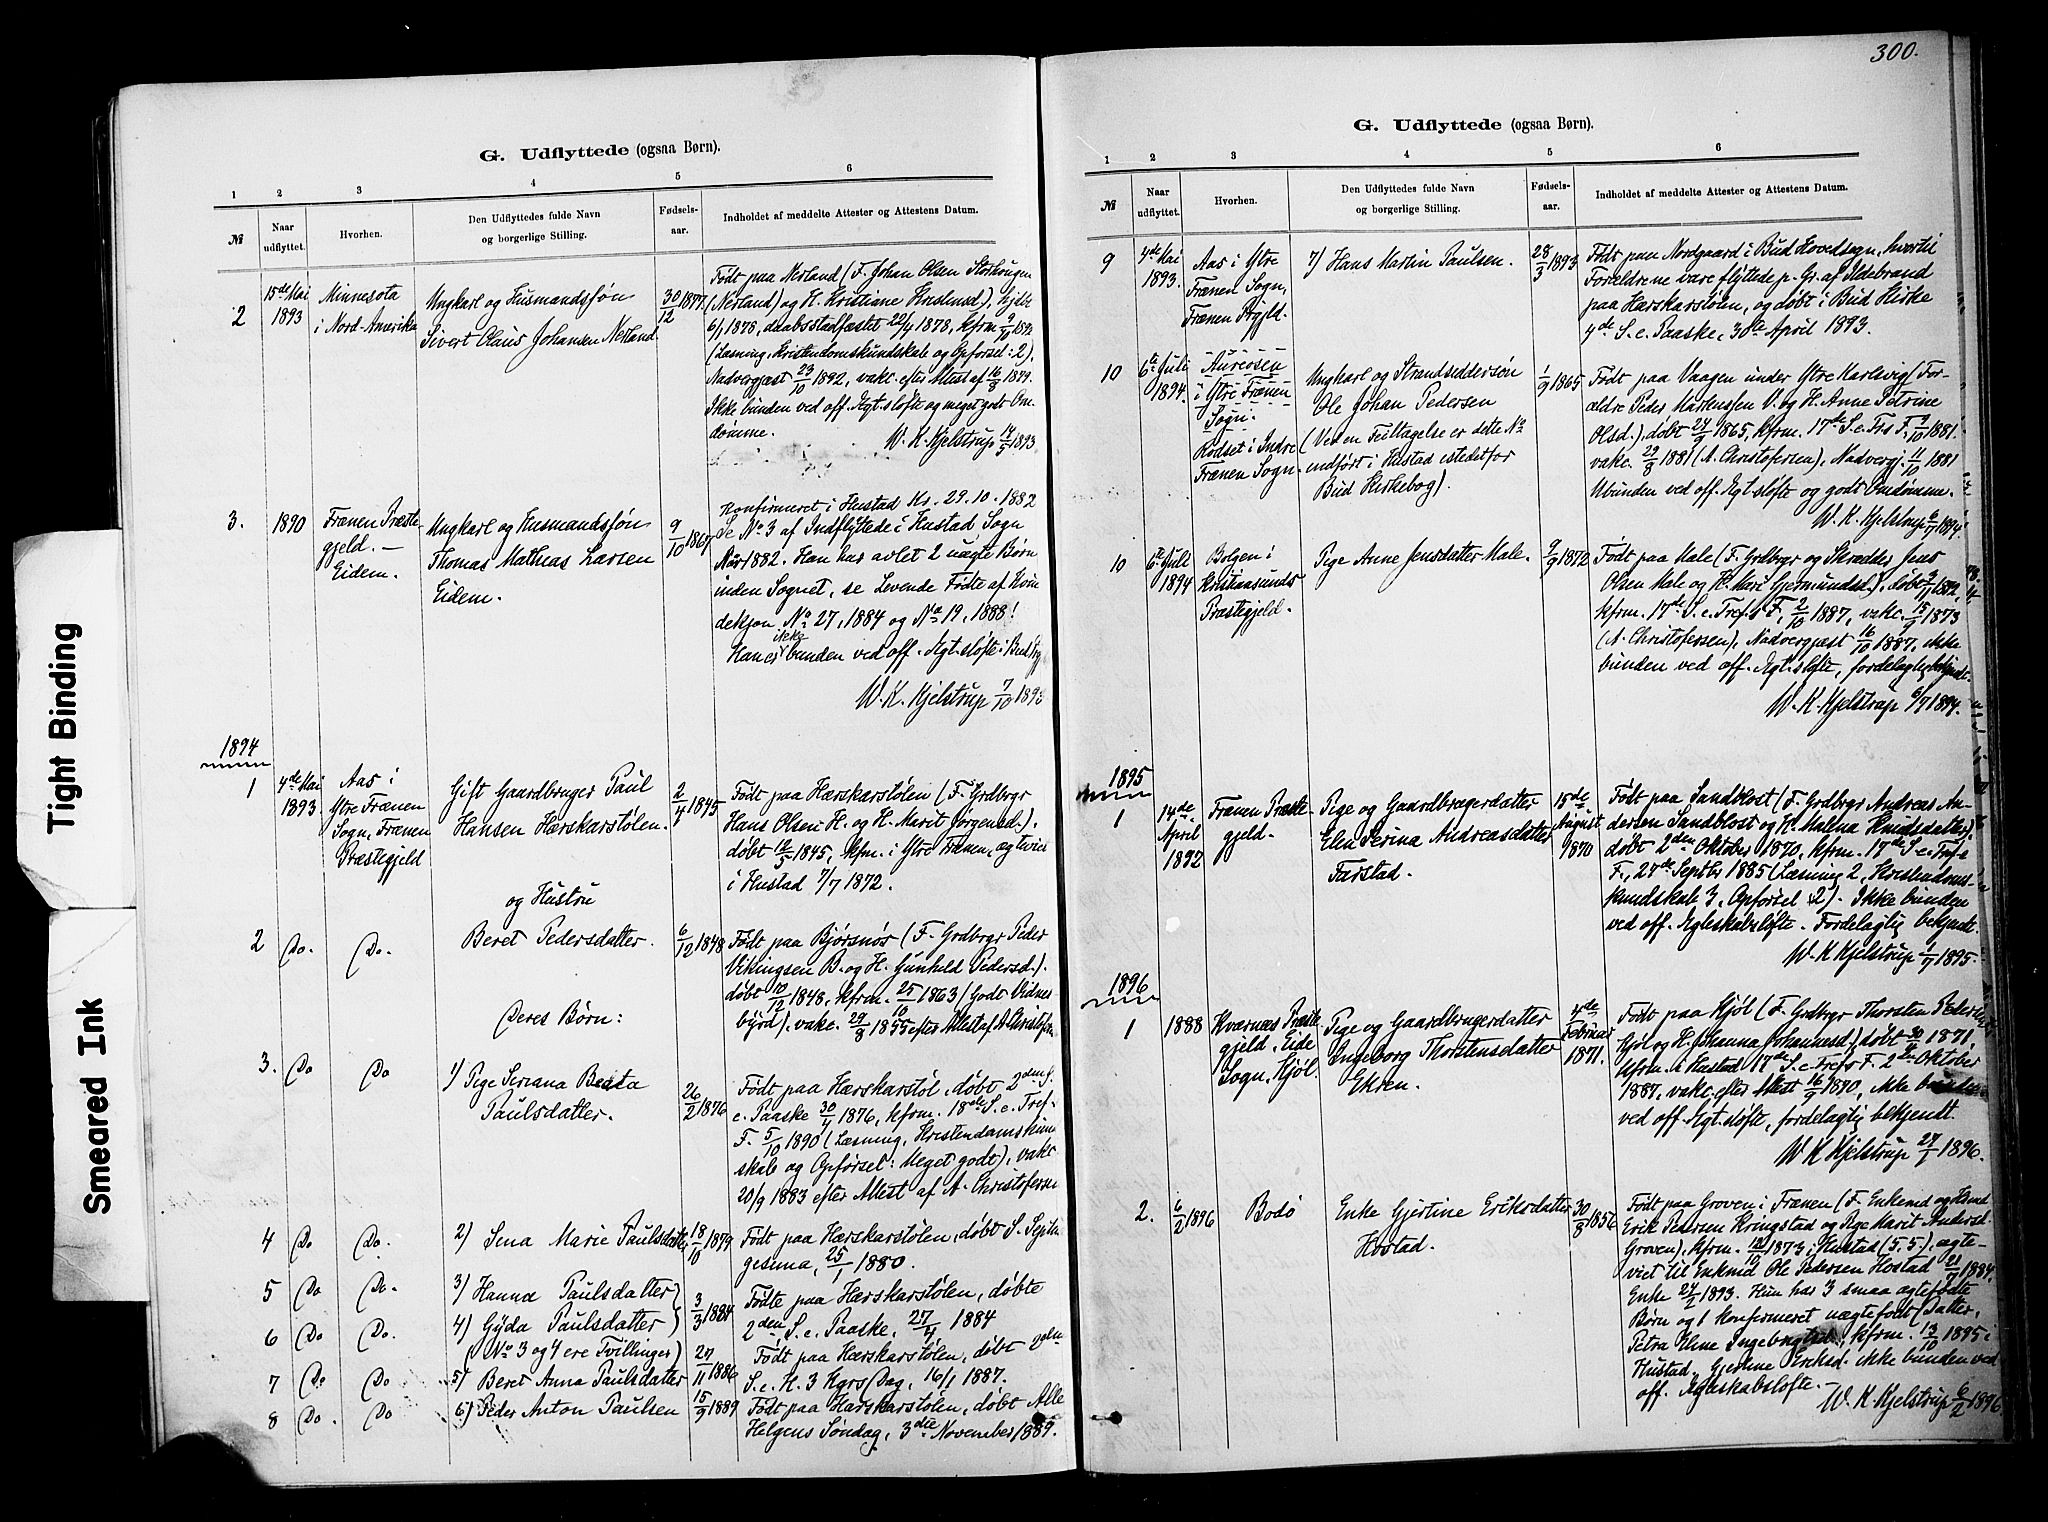 Tight Binding
Smeared Ink
G. Udflyttede (ogsaa Børn).
1 2 3 4 5 6
№ Naar udflyttet. Hvorhen. Den Udflyttedes fulde Navn og borgerlige Stilling. Fødselsaar. Indholdet af meddelte Attester og Attestens Datum.
2 15de Mai 1893 Minnesota i Nord-Amerika
Ungkarl og Husmandssøn
Sivert Olaus Johansen Nerland.
30/12 1877
Født paa Nerland (F. Johan Olsen Storhougen
(Nerland) og H. Kristiane
6/1 1878, daabsstadfæstet 22/4 1878, kfrm. 9/10 1892
(Læsning, Kristendomskundskab og Opførsel: 2).
Nadvergjæst 23/10 1892, vakc. efter Attest af 16/8 1879.
Ikke bunden ved off. Ægt.sløfte og meget godt Om-
dømme. W. K. Kjelstrup 14/5 1893
3. 1890 Frænen Præste-
gjeld. —
Eidem.
Ungkarl og Husmandssøn
Thomas Mathias Larsen
Eidem.
9/10 1867
Konfirmeret i Hustad Kr. 29.10.1882
Se No 3 af Indflyttede i Hustad Sogn
1882. Han har avlet 2 uægte Børn
inden Sognet, se Levende Fødte af Kvin
dekjøn No 27, 1884 og No 19, 1888!
Han er ikke bunden ved off. Ægt.sløfte i Bud
W. K. Kjelstrup 7/10 1893
1894
1 4de Mai 1893
Aas i
Ytre Frænen
Sogn, Frænen
Præstegjeld
Gift Gaardbruger Paul
Hansen Hærskarstølen.
2/4 1845
Født paa Hærskarstølen (F. Grdbrgr
Hans Olsen H. og H. Marit Jørgensd.).
døbt 12/5 1845, kfrm. i Ytre Frænen, ægtviet
i Hustad 7/7 1872.
og Hustru
2 Do. Do. Beret Pedersdatter. 6/12 1848
Født paa Bjørsnøs (F. Grdbrgr Peder
Vikingsen B. og H. Gunhild Pedersd.).
døbt 10/12 1848, kfrm. 25/10 1863 (Godt Vidnes-
byrd). vakc. 29/8 1855 efter Attest af A. Christofersen
Deres Børn:
3. Do Do 1) Pige Seriana Beata
Paulsdatter.
26/2 1876
Født paa Hærskarstøl, døbt 2den S.
e. Paaske 30/4 1876, kfrm. 18de S. e. Tref-
F. 5/10 1890 (Læsning, Kristendomskund
skab og Opførsel: Meget godt), vakc.
20/9 1883 efter Attest af A. Christofersen
4 Do Do. 2) Sena Marie Paulsdatter 18/10 1879
Født paa Hærskarstølen, døbt S. Septua
gesima, 25/1 1880.
5 Do Do. 3) Hanna Paulsdatter}
6 Do Do. 4) Gyda Paulsdatter} 3/3 1884
(No 3 og 4 ere Tvillinger)
Fødte paa Hærskarstølen, døbte
2den S. e. Paaske, 27/4 1884
7 Do Do 5) Beret Anna Paulsdatter 27/11 1886
Født paa Hærskarstølen, døbt 2den
S. e. H. 3 Kgrs Dag, 16/1 1887.
8 Do. Do 6) Peder Anton Paulsen 15/9 1889
Født paa Hærskarstølen, døbt Alle
Helgens Søndag, 3die November 1889.
300.
G. Udflyttede (ogsaa Børn).
1 2 3 4 5 6
№ Naar udflyttet. Hvorhen. Den Udflyttedes fulde Navn og borgerlige Stilling. Fødselsaar. Indholdet af meddelte Attester og Attestens Datum.
9 4de Mai 1893.
Aas i Ytre
Frænen Sogn,
Frænen Prgjeld.
7) Hans Martin Paulsen. 28/3 1893
Født paa Nordgaard i Bud Hovedsogn, hvortil
Foreldrene vare flyttede p. Gr. af Ildebrand
paa Hærskarstølen, og døbt i Bud Kirke
4de S. e. Paaske, 30te April 1893.
10 6te Juli 1894.
Aureosen
i Ytre Frænen
Sogn.
Rødset i Indre
Frænen Sogn.
Ungkarl og Strandsiddersøn
Ole Johan Pedersen
(Ved en Feiltagelse er dette No
indført i Hustad istedetfor
Bud Kirkebog).
1/9 1865
Født paa Vaagen under Ytre Karlsvig (For-
ældre Peder Markussen V. og H. Anne Petrine
Olsd.), døbt 24/9 1865, kfrm. 17de S. e. Trs F. 9/10 1881.
vakc. 29/8 1881 (A. Christofersen), Nadvergj. 11/10 1881
Ubunden ved off. Ægt.sløfte og godt Omdømme.
W. K. Kjelstrup 6/7 1894.
10 6te Juli 1894
Bolgen i
Kristiansunds
Præstegjeld.
Pige Anne Jensdatter Male. 9/9 1872
Født paa Male (F. Grdbrgr og Skrædder Jens
Olsen Male og H. Mari Gjermundsd.), døbt
kfrm. 17de S. e. Tref.s F., 2/10 1887, vakc. 15/9 1873
(A. Christofersen), Nadvergjæst 16/10 1887, ikke
bunden ved off. Ægt.sløfte, fordelagtig bekjendt.
W. K. Kjelstrup 6/7 1894.
1895
1 14de April 1892
Frænen Præste-
gjeld.
Pige og Gaardbrugerdatter
Elen Perina Andreasdatter
Farstad.
15de August 1870
Født paa Sandblost (F. Grdbrgr Andreas An-
dersen Sandblost og H. Malena Knudsdatter)
døbt 2den Oktober 1870, kfrm. 17de S. e. Tref.s
F., 27de Septbr 1885 (Læsning 2, Kristendoms-
kundskab 3, Opførsel 2). Ikke bunden
ved off. Egteskabsløfte. Fordelagtig bekjendt.
W. K. Kjelstrup 1/7 1895.
1896
1 1888
Kværnæs Præste
gjeld, Eide
Sogn, Kjøl.
Pige og Gaardbrugerdatter
Ingeborg Thorstensdatter
Ekren.
4de Februar 1871.
Født paa Kjøl (F. Grdbrgr Thorsten Pedersen
Kjøl og H. Johanna Johannesd.), døbt 30/4 1871,
kfrm. i Hustad 17de S. e. Tref.s F. 2den Oktober
1887, vakc. efter Attest 16/9 1870, ikke bunden
ved off. Ægt.sløfte, fordelagtig bekjendt.
W. K. Kjelstrup 27/1 1896.
2. 6/2 1896 Bodø
Enke Gjertine Eriksdatter
Hostad.
30/8 1856
Født paa Groven i Frænen (F. Enkemd og Husmd
Erik Pedersen Kringstad og Pige Marit Andersd.
Groven), kfrm. 12/10 1873 i Hustad (5, 5), ægte-
viet til Enkmd Ole Pedersen Hostad 21/7 1884,
Enke 24/2 1893. Hun har 3 smaa ægtefødte
Børn og 1 konfirmeret uægtefødt Datter,
Petra Eline Ingebrigtsd., kfrm. 13/10 1895 i
Hustad, Gjertine Eriksd. ikke bunden ved
off. Egteskabsløfte. —
W. K. Kjelstrup 6/2 1896